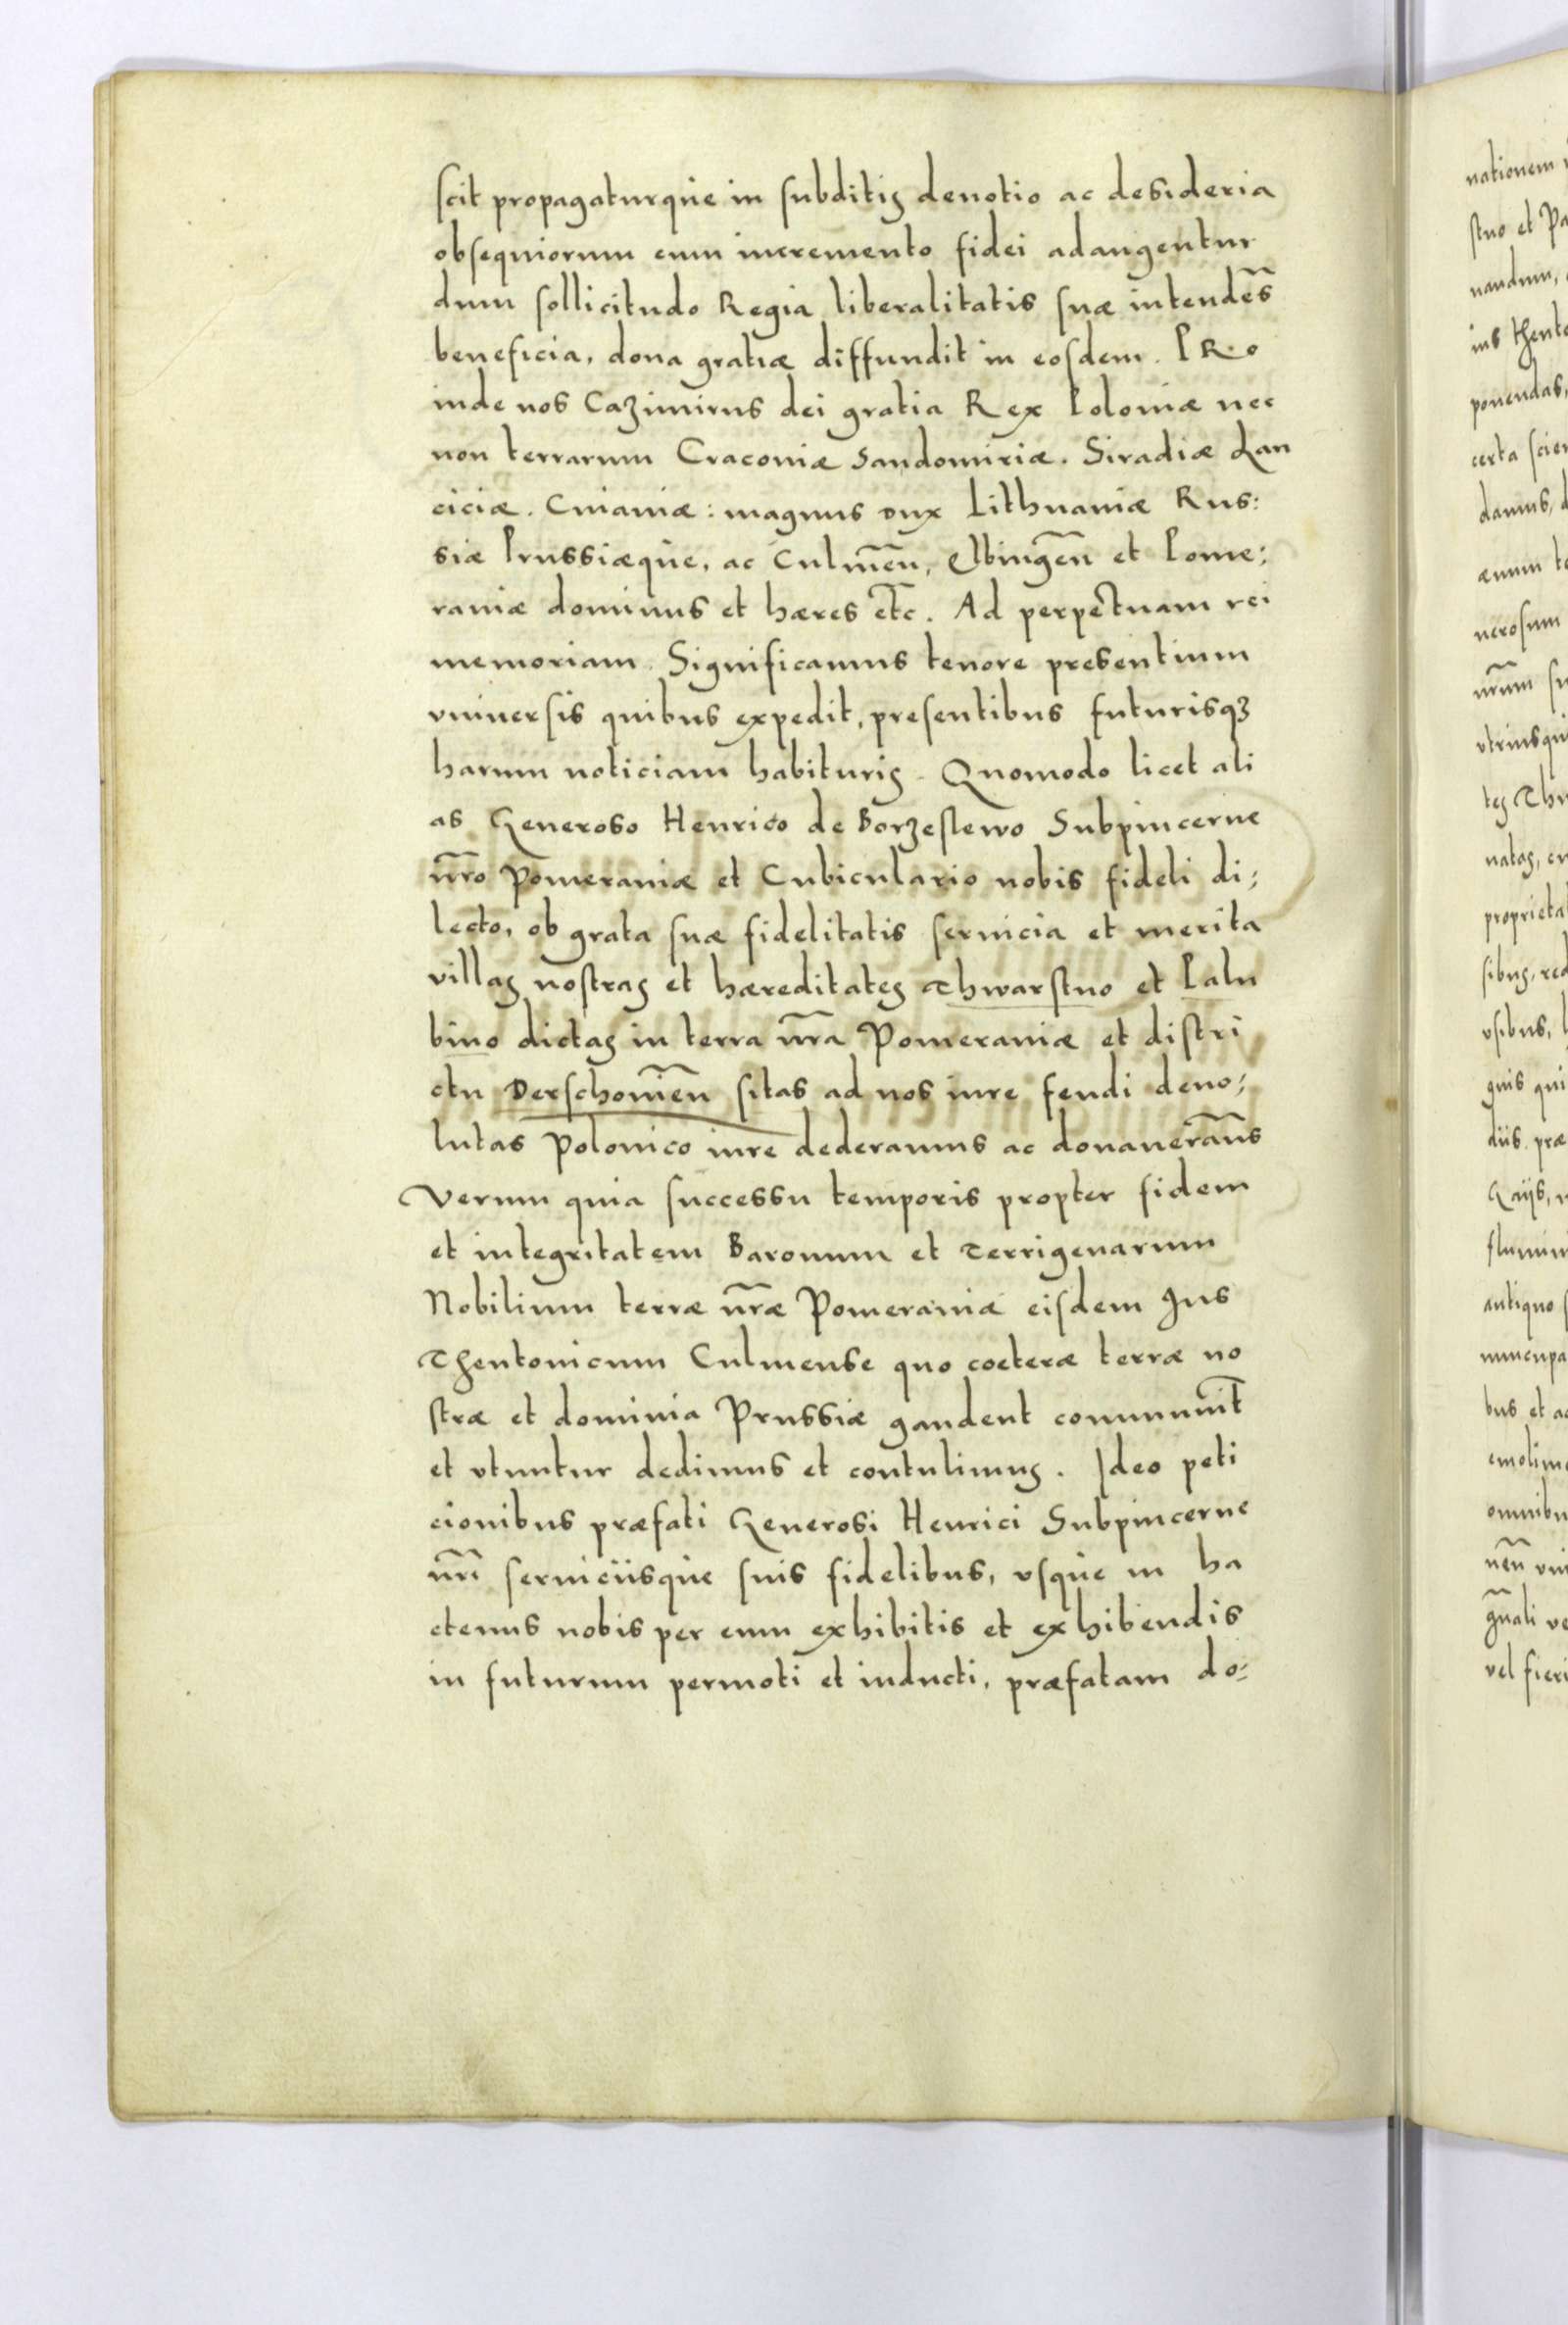 scit propagaturque in subditis deuotio ac desideria
obsequiorum cum incremento fidei adaugentur
dum sollicitudo Regia liberalitatis suæ intendẽs
beneficia, dona gratiæ diffundit in eosdem. PRo
inde nos Cazimirus dei gratia Rex Poloniæ nec
non terrarum Cracouiæ Sandomiriæ. Siradiæ Lan
ciciæ. Cuiauiæ: magnus Dux Lithuaniæ Rus:
siæ Prussiæque, ac Culmeñ, Elbingeñ et Pome:
raniæ dominus et hæres etc̃. Ad perpetuam rei
memoriam. Significamus tenore presentium
vniuersis quibus expedit, presentibus futurisqȝ
harum noticiam habituris. Quomodo licet ali
as Generoso Henrico de Borzestewo Subpincerne
nr̃o Pomeraniæ et Cubiculario nobis fideli di:
lecto, ob grata suæ fidelitatis seruicia et merita
villas nostras et hæreditates Thwarstno et Palu
bino dictas in terra nr̃a Pomeraniæ et distri
ctu Derschouieñ sitas ad nos iure feudi deuo:
lutas Polonico iure dederamus ac donauerãus
Verum quia successu temporis propter fidem
et integritatem Baronum et Terrigenarum
Nobilium terræ nr̃æ Pomeraniæ eisdem Jus
Theutonicum Culmense quo coeteræ terræ no
stræ et dominia Prussiæ gaudent communit̃
et vtuntur dedimus et contulimus. Ideo peti
cionibus præfati Generosi Henrici Subpincerne
nr̃i seruicijsque suis fidelibus, vsque in ha
ctenus nobis per eum exhibitis et exhibendis
in futurum permoti et inducti, præfatam do:
nationem
stno et Pa
nandum,
ius theuto
ponendas,
certa scien
damus, d
æuum te
nerosum
nr̃um su
vtriusqu
tes Thw
natas, cu
proprieta
sibus, red
vsibus, l
quis qui
dijs. præ
Gaijs,
flumin
antiquo
nuncupa
bus et a
emolime
omnibu
neñ vni
gñali ve
vel fieri